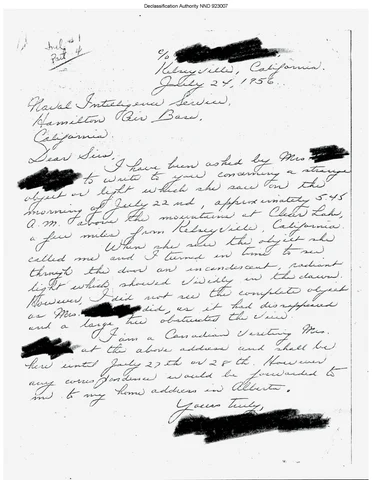 Declassification Authority NND 923007
Incl #1
Part 4
c/o
Kelseyville, California.
July 24, 1956.
Naval Intelligence Service,
Hamilton Air Base,
California.
Dear Sirs,
I have been asked by Mrs
to write to you concerning a strange
object or light which she saw on the
morning of July 22nd, approximately 5.45
A.M. above the mountains at Clear Lake,
a few miles from Kelseyville, California.
When she saw the object she
called me and I turned in time to see
through the door an incandescent, radiant
light which showed vividly in the dawn.
However, I did not see the complete object
as Mrs. did, as it had disappeared
and a large tree obstructs the view.
I am a Canadian visiting Mrs.
at the above address and shall be
here until July 27th or 28th. However
any correspondence would be forwarded to
me to my home address in Alberta.
Yours truly,